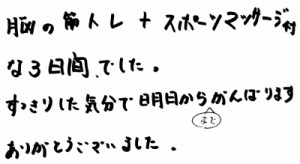 脳の筋トレ + スポーツマッサージ付
な3日間、でした。
すっきりした気分で明日からがんばります
まで
ありがとうございました。